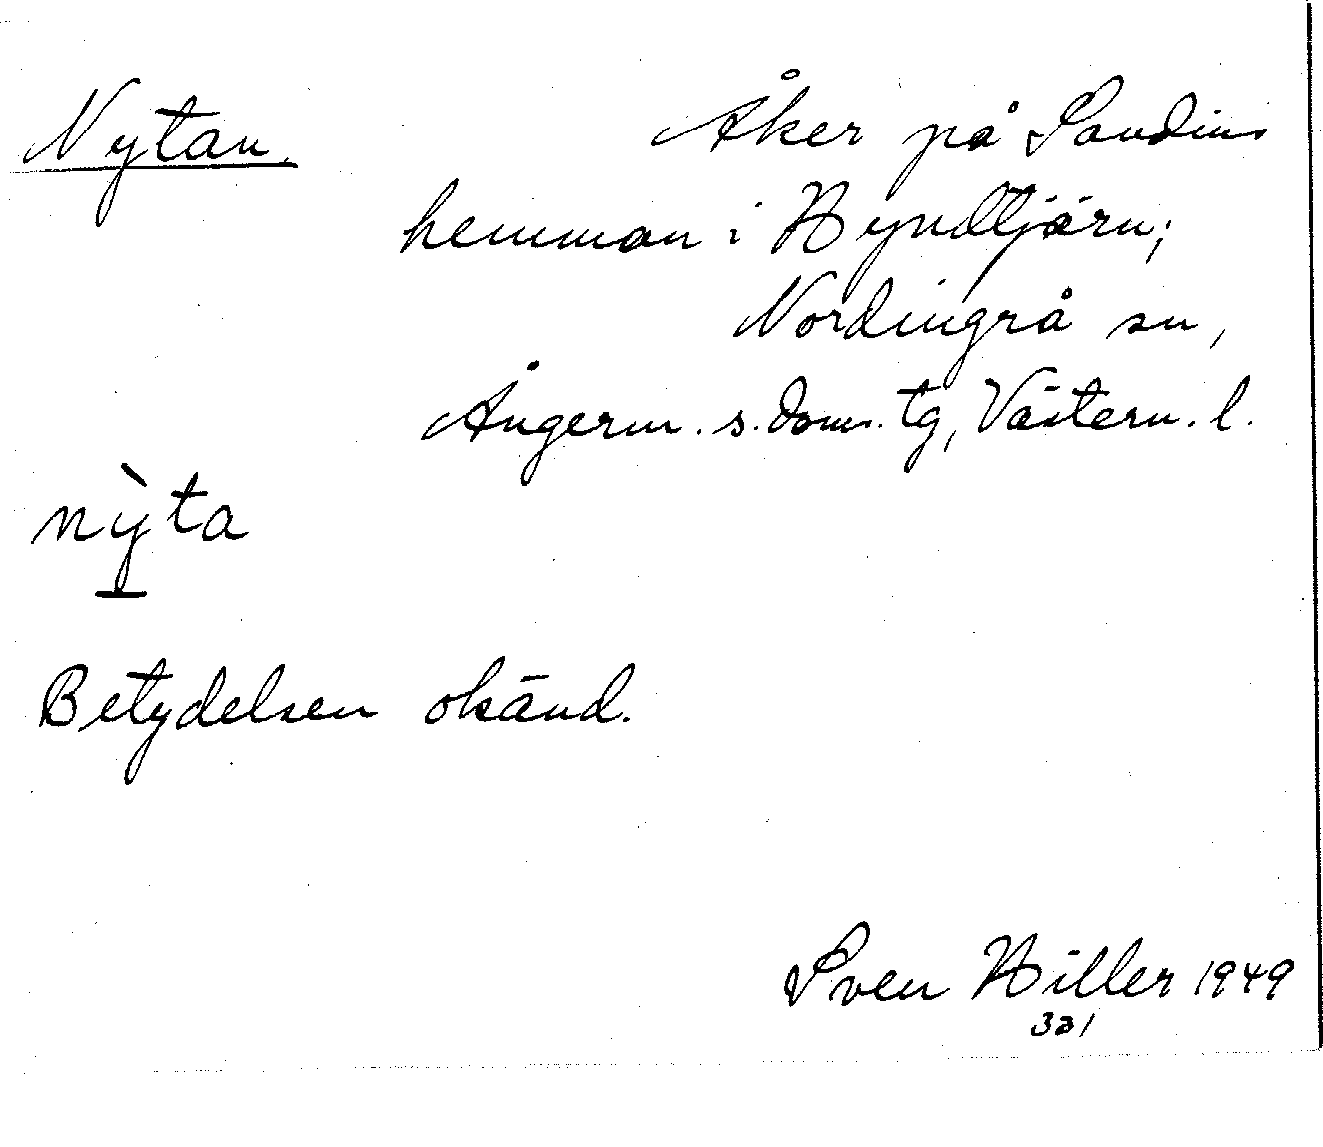 Nytan.
Åker på Sandins
hemman i Hyndtjärn;
Nordingrå sn,
Ångerm. s. doms. tg, Västern. l.
nỳta
Betydelsen okänd.
Sven Hiller 1949
321